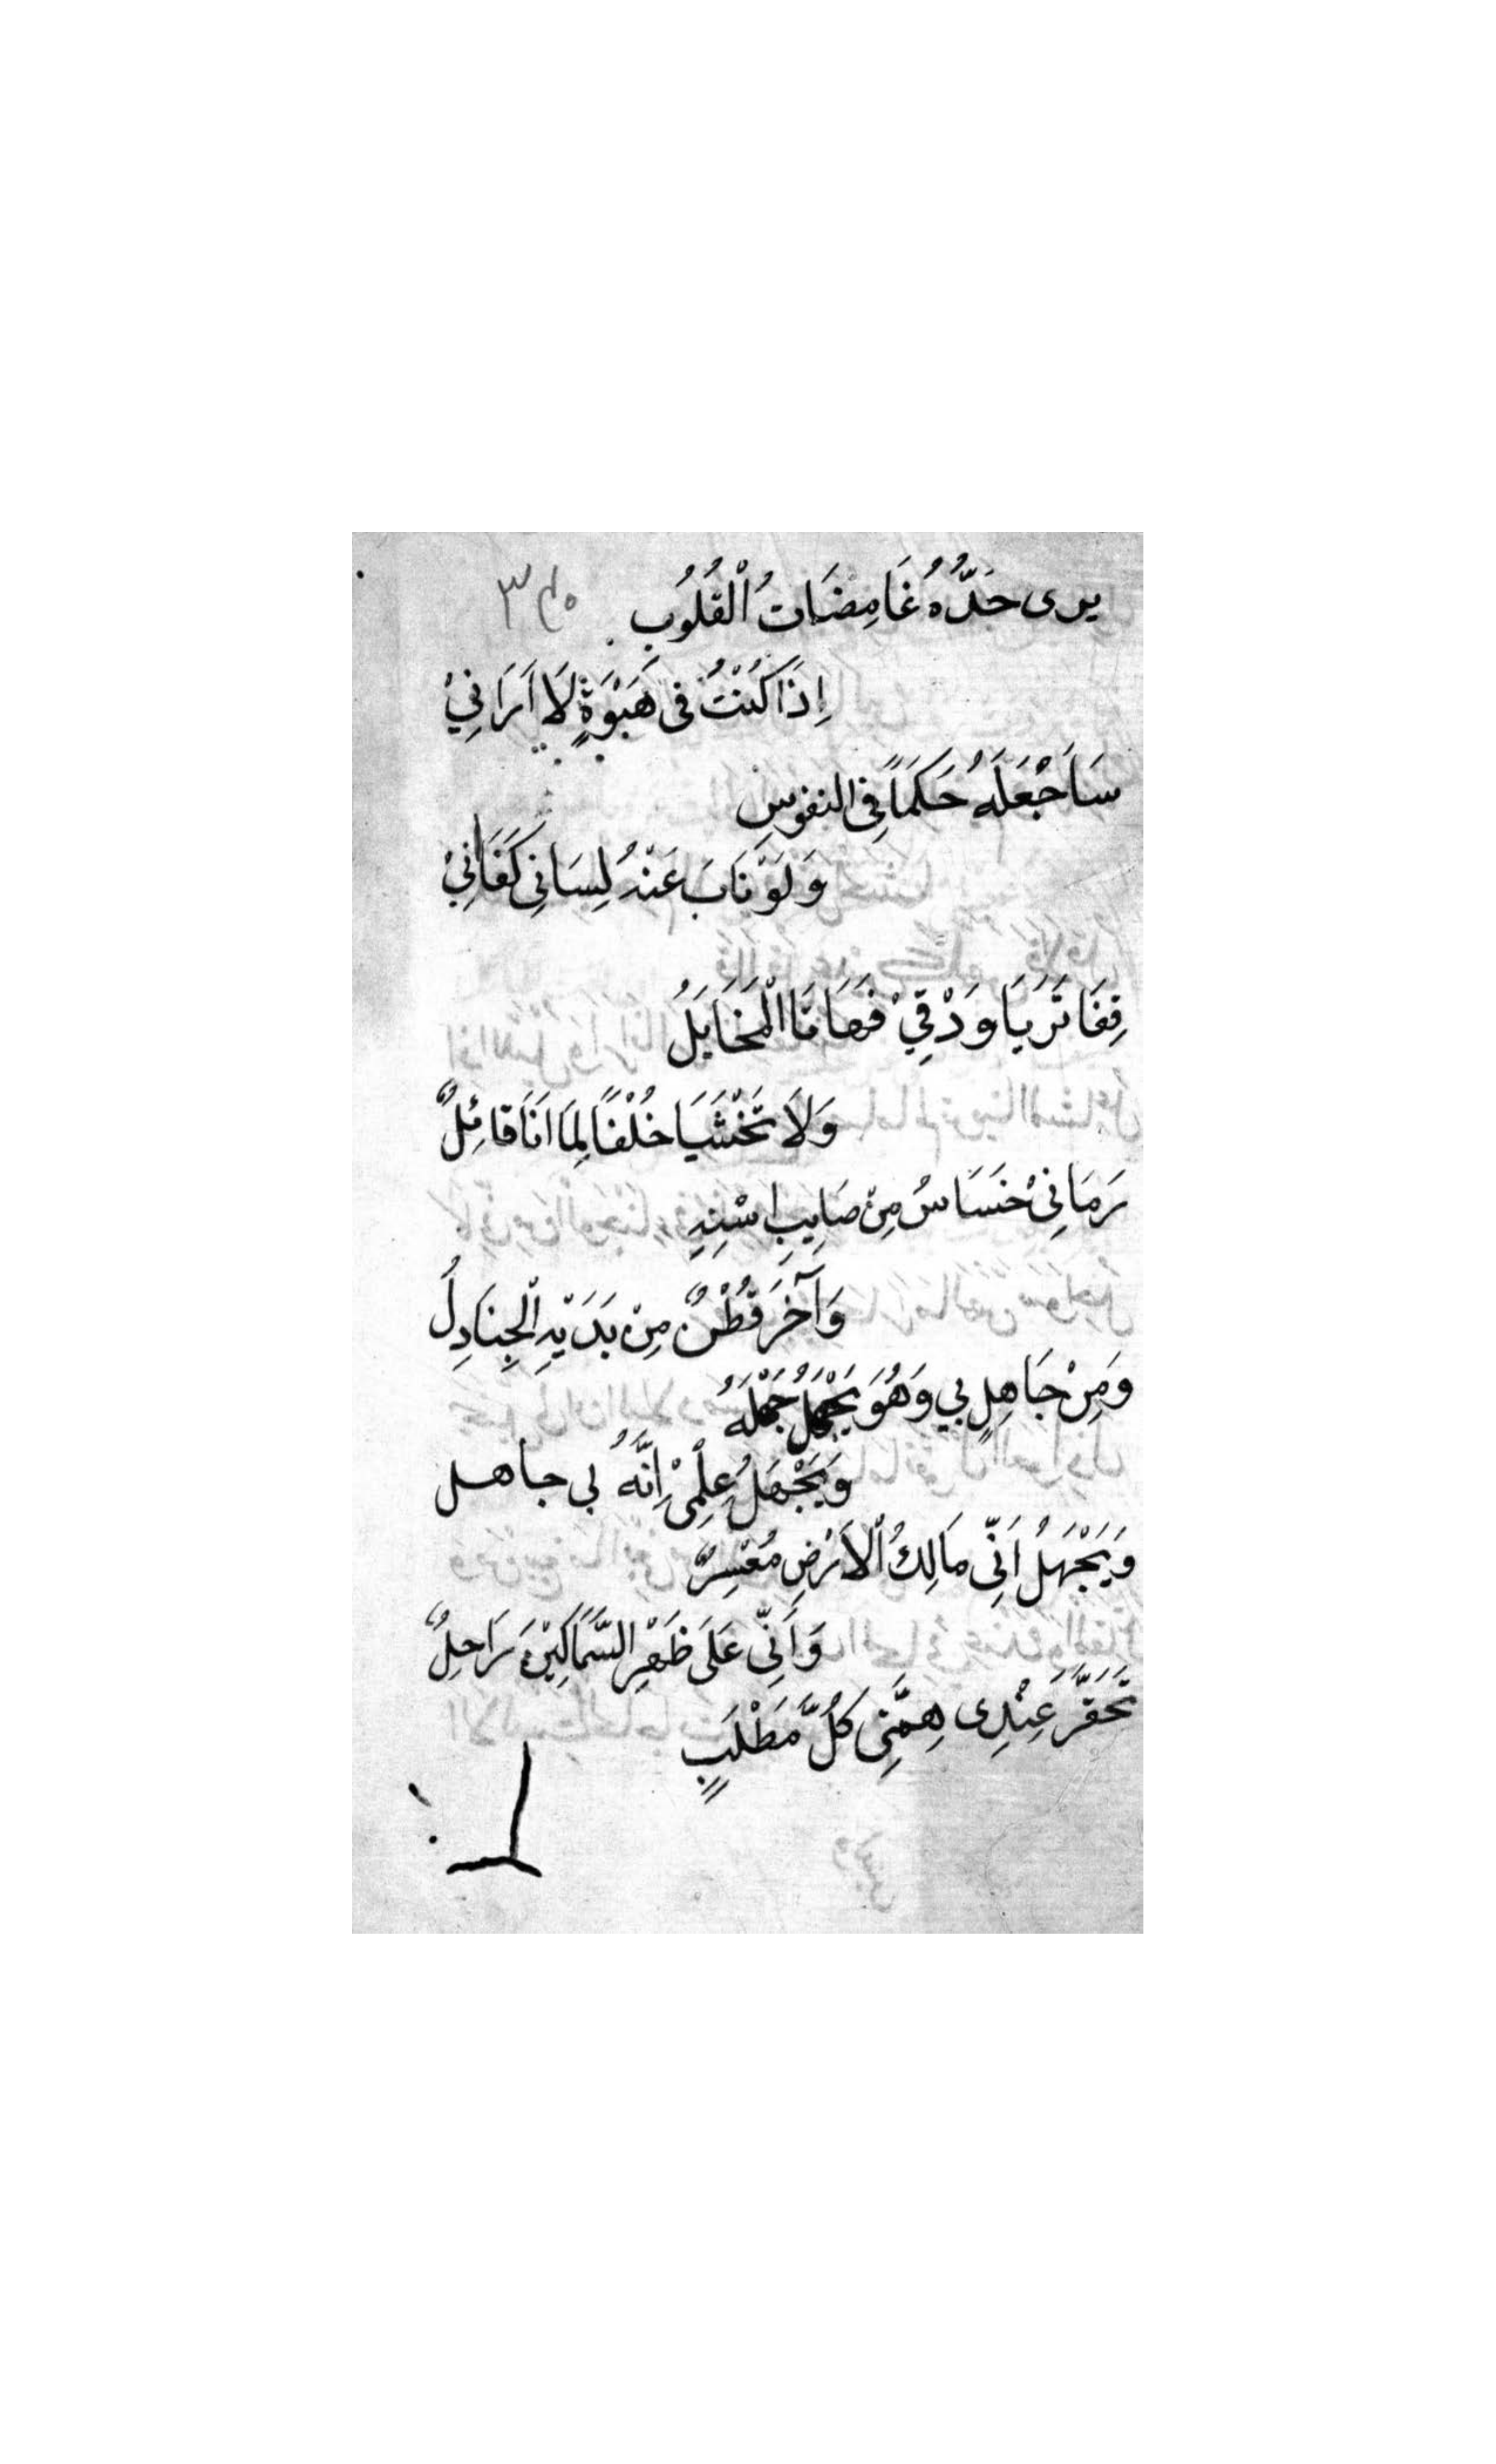 يرى حَدُّهُ غَامِضَاتُ الْقُلُوبِ
اِذَا كُنْتُ فى هَبْوَةٍ لَا اَرَانِيْ
سَاَجْعَلَهُ حَكَمَاً فِى النفوسِ
وَلَوْ نَابَ عَنْهُ لِسَانِى كَفَانِيْ
قِفَا تَرَيَا وَدْقِيْ فَهَاتَا الْمَخَايَلُ
وَلَا تَخْشَيَا خُلْفًا لِمَا اَنَا قَائِلٌ
رَمَانِىْ خَسَاسُ مِنْ صَايِبِ اسْتِهِ
وَآخَرَ قُطْنٌ مِنْ يَدَيْهِ الْجِنَادِلُ
وَمِنْ جَاهِلٍ بي وَهُوَ يَجْهَلُ جَهْلَهُ
وَيَجْهَلُ عِلْمِىْ اِنَّهُ بى جاهل
وَيَجْهَلُ اَنِّى مَالِكُ الْاَرْضِ مُعْسِرٌ
وَاَنِّى عَلَى ظَهْرِ السَّمَاكِيْنَ رَاحِلٌ
تَحَقَّرَ عِنْدِى هِمَّتِى كُلَّ مَطْلَبٍ